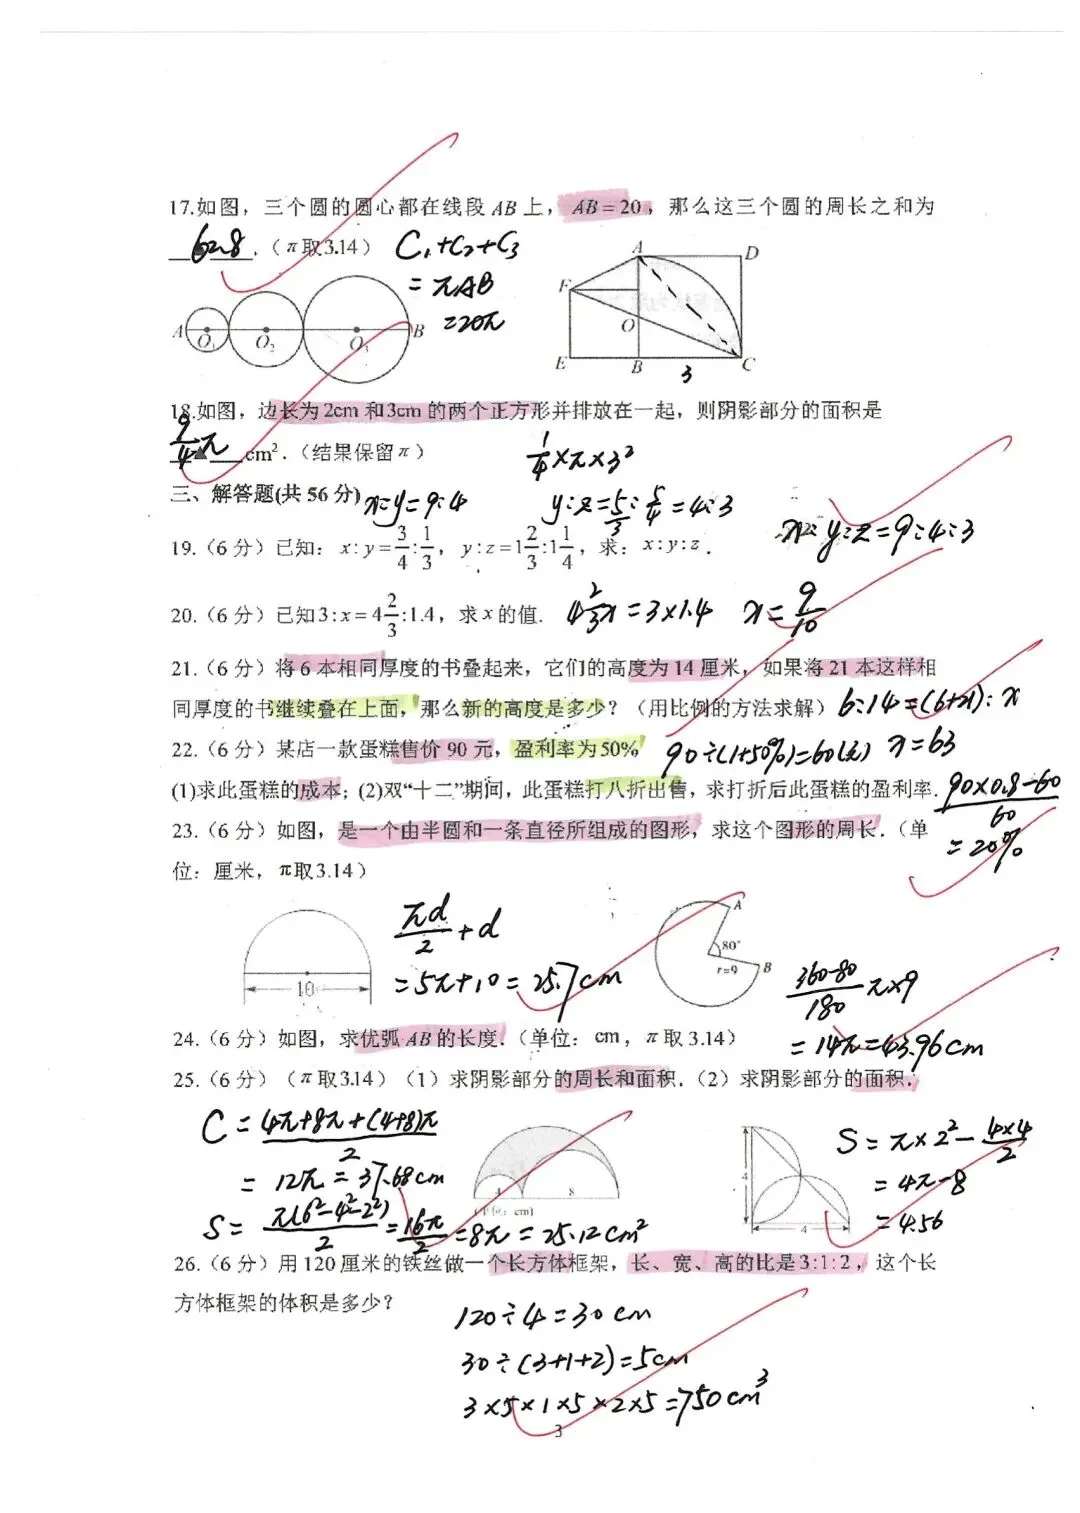 17.如图，三个圆的圆心都在线段 AB 上，AB=20，那么这三个圆的周长之和为
62.8 .（π取3.14） C₁+C₂+C₃
=πAB
=20π
A O₁ O₂ O₃ B
A D F O E B C 3
18.如图，边长为2cm 和3cm 的两个正方形并排放在一起，则阴影部分的面积是
9/4 π cm².（结果保留π） 1/4×π×3²
三、解答题(共 56 分) x:y=9:4 y:z=5/3:5/4=4:3
19.（6 分）已知：x:y=3/4:1/3，y:z=1 2/3:1 1/4，求：x:y:z． x:y:z=9:4:3
20.（6 分）已知3:x=4 2/3:1.4，求x的值. 4 2/3 x=3×1.4 x=9/10
21.（6 分）将 6 本相同厚度的书叠起来，它们的高度为 14 厘米，如果将 21 本这样相
同厚度的书继续叠在上面，那么新的高度是多少？（用比例的方法求解） 6:14=(6+21):x
x=63
22.（6 分）某店一款蛋糕售价 90 元，盈利率为50% 90÷(1+50%)=60(元)
(1)求此蛋糕的成本；(2)双“十二”期间，此蛋糕打八折出售，求打折后此蛋糕的盈利率. (90×0.8-60)/60
=20%
23.（6 分）如图，是一个由半圆和一条直径所组成的图形，求这个图形的周长．（单
位：厘米，π取3.14）
10
πd/2+d
=5π+10=25.7cm
A 80° r=9 B
(360-80)/180 π×9
=14π=43.96cm
24.（6 分）如图，求优弧 AB 的长度.（单位：cm，π取 3.14）
25.（6 分）（π取3.14）（1）求阴影部分的周长和面积.（2）求阴影部分的面积.
C=(4π+8π+(4+8)π)/2
=12π=37.68cm
S=π(6²-4²-2²)/2=16π/2=8π=25.12cm²
4 8
(单位：cm)
4 4
S=π×2²-(4×4)/2
=4π-8
=4.56
26.（6 分）用 120 厘米的铁丝做一个长方体框架，长、宽、高的比是 3:1:2，这个长
方体框架的体积是多少？
120÷4=30cm
30÷(3+1+2)=5cm
3×5×1×5×2×5=750cm³
3